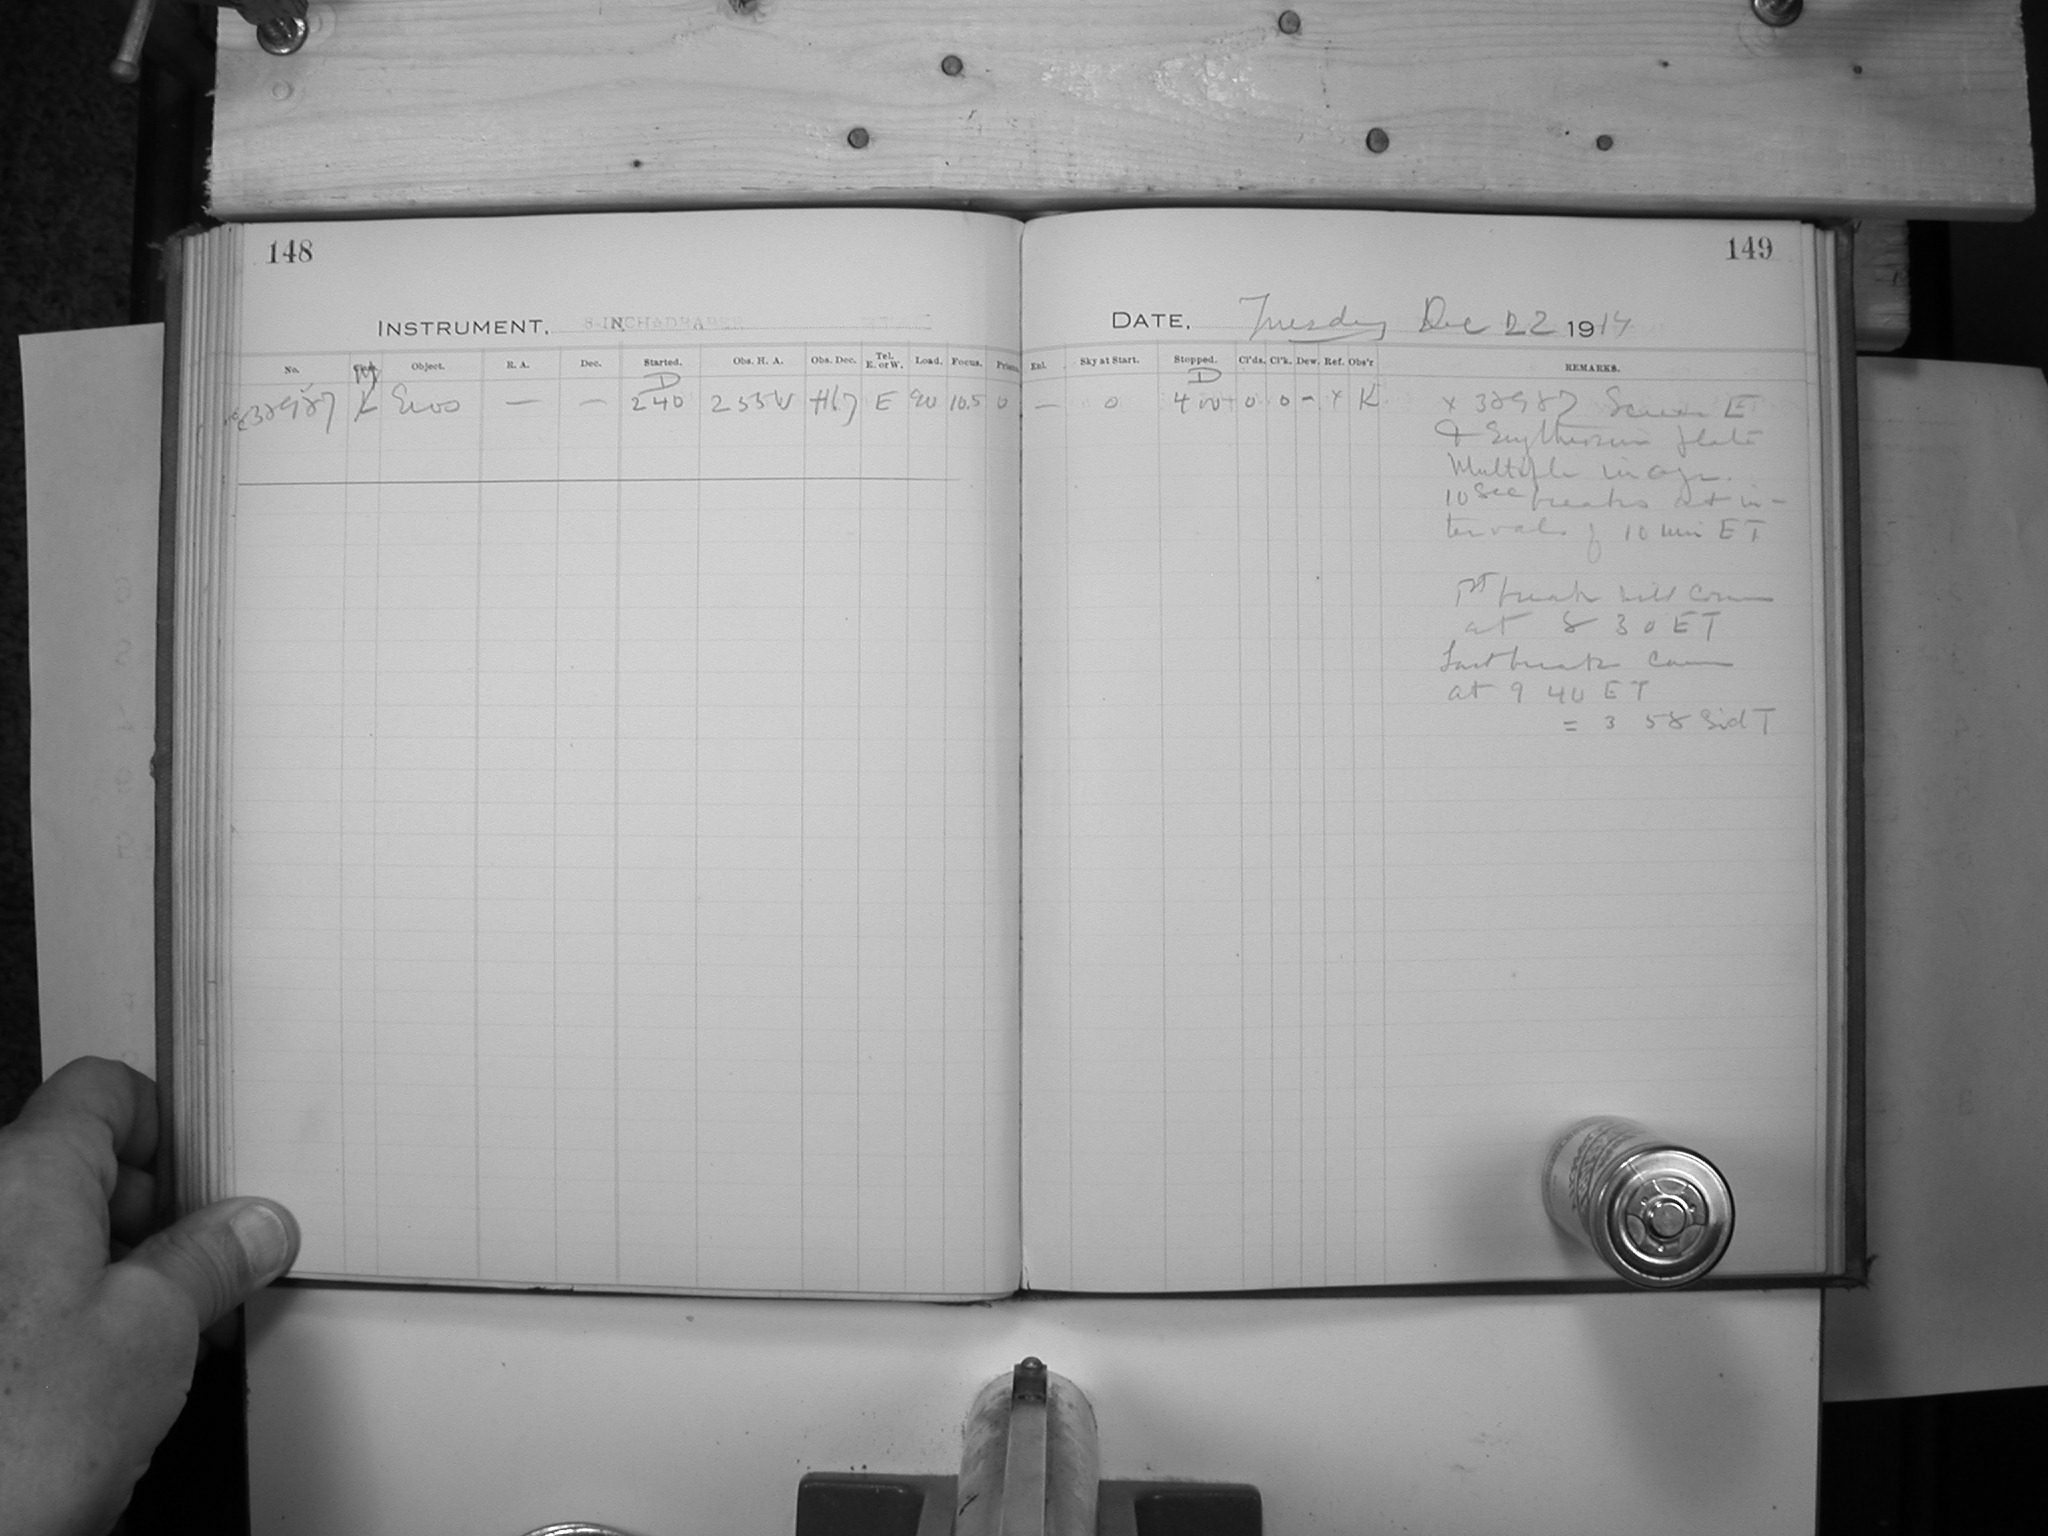 148
149
INSTRUMENT, 8-INCH DRAPER
DATE, Tuesday Dec 22 1914
No. Object. R. A. Dec. Started. Obs. H. A. Obs. Dec. Tel. E. or W. Load. Focus. Prism. Enl. Sky at Start. Stopped. Cl'ds. Cl'k. Dew. Ref. Obs'r REMARKS.
D D
38987 Eros — — 240 E 90 10.5 0 — 0 4 00 0 0 - x K
x 38987 Screen E
& Erythrosin plate
Multiple image.
10 sec breaks at in-
tervals of 10 min ET
1st break will comm
at 8 30 ET
Last break comm
at 9 40 ET
= 3 58 Sid T